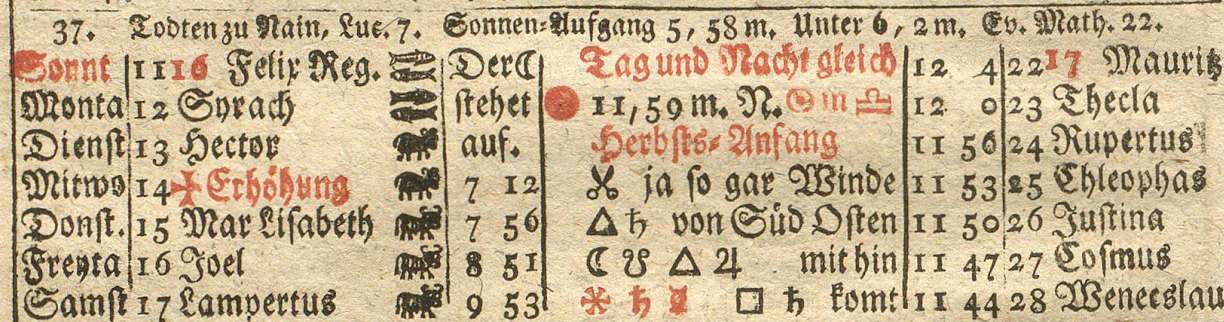 37. Todten zu Nain, Luc. 7. Sonnen-Aufgang 5, 58 m. Unter 6, 2 m. Ev. Math. 22.
Sonnt 11 16 Felix Reg. Der☾ Tag und Nacht gleich 12 4 22 17 Mauritz
Monta 12 Syrach stehet 11, 59 m. N. ☉ in ♎ 12 0 23 Thecla
Dienst 13 Hector auf. Herbsts-Anfang 11 56 24 Rupertus
Mitwo 14 Erhöhung 7 12 ja so gar Winde 11 53 25 Chleophas
Donst. 15 Mar Lisabeth 7 56 △ ♄ von Süd Osten 11 50 26 Justina
Freyta 16 Joel 8 51 ☾ ☋ △ ♃ mit hin 11 47 27 Cosmus
Samst 17 Lampertus 9 53 ♄ □ ♄ komt 11 44 28 Wenecslau